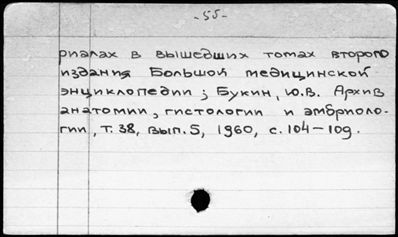 -55-
риалах в вышедших томах второго
издания Большой медицинской
энциклопедии; Букин, Ю.В. Архив
анатомии, гистологии и эмбриоло-
гии, т.38, вып.5, 1960, с.104-109.